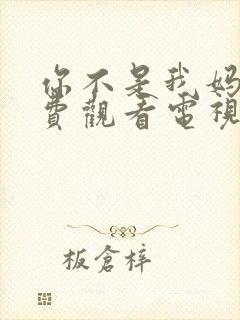 你不是我妈
費觀看電視
板倉梓